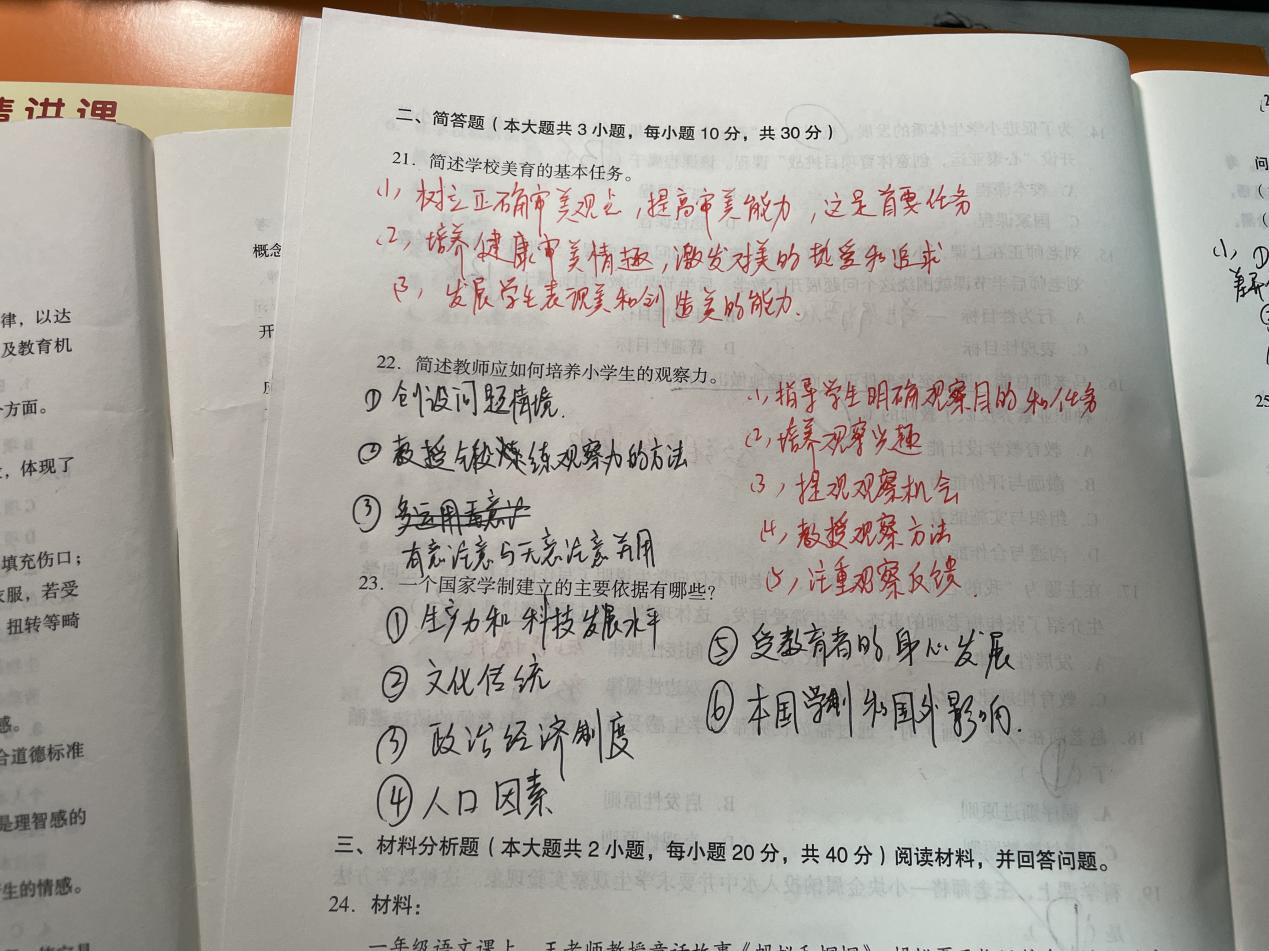 精讲课
概念
开
律，以达
及教育机
方面。
体现了
填充伤口；
衣服，若受
扭转等畸
感。
合道德标准
是理智感的
产生的情感。
二、简答题（本大题共 3 小题，每小题 10 分，共 30 分）
21. 简述学校美育的基本任务。
(1) 树立正确审美观点，提高审美能力，这是首要任务
(2) 培养健康审美情趣，激发对美的热爱和追求
(3) 发展学生表现美和创造美的能力.
22. 简述教师应如何培养小学生的观察力。
① 创设问题情境.
② 教授锻炼观察力的方法
③ 多运用无意注
有意注意与无意注意并用
(1) 指导学生明确观察目的和任务
(2) 培养观察兴趣
(3) 提观观察机会
(4) 教授观察方法
(5) 注重观察反馈.
23. 一个国家学制建立的主要依据有哪些？
① 生产力和科技发展水平
② 文化传统
③ 政治经济制度
④ 人口因素
⑤ 受教育者的身心发展
⑥ 本国学制和国外影响.
三、材料分析题（本大题共 2 小题，每小题 20 分，共 40 分）阅读材料，并回答问题。
24. 材料：
一年级语文课上，王老师教授童话故事《蚂蚁和蝈蝈》
问
(1) ①
25